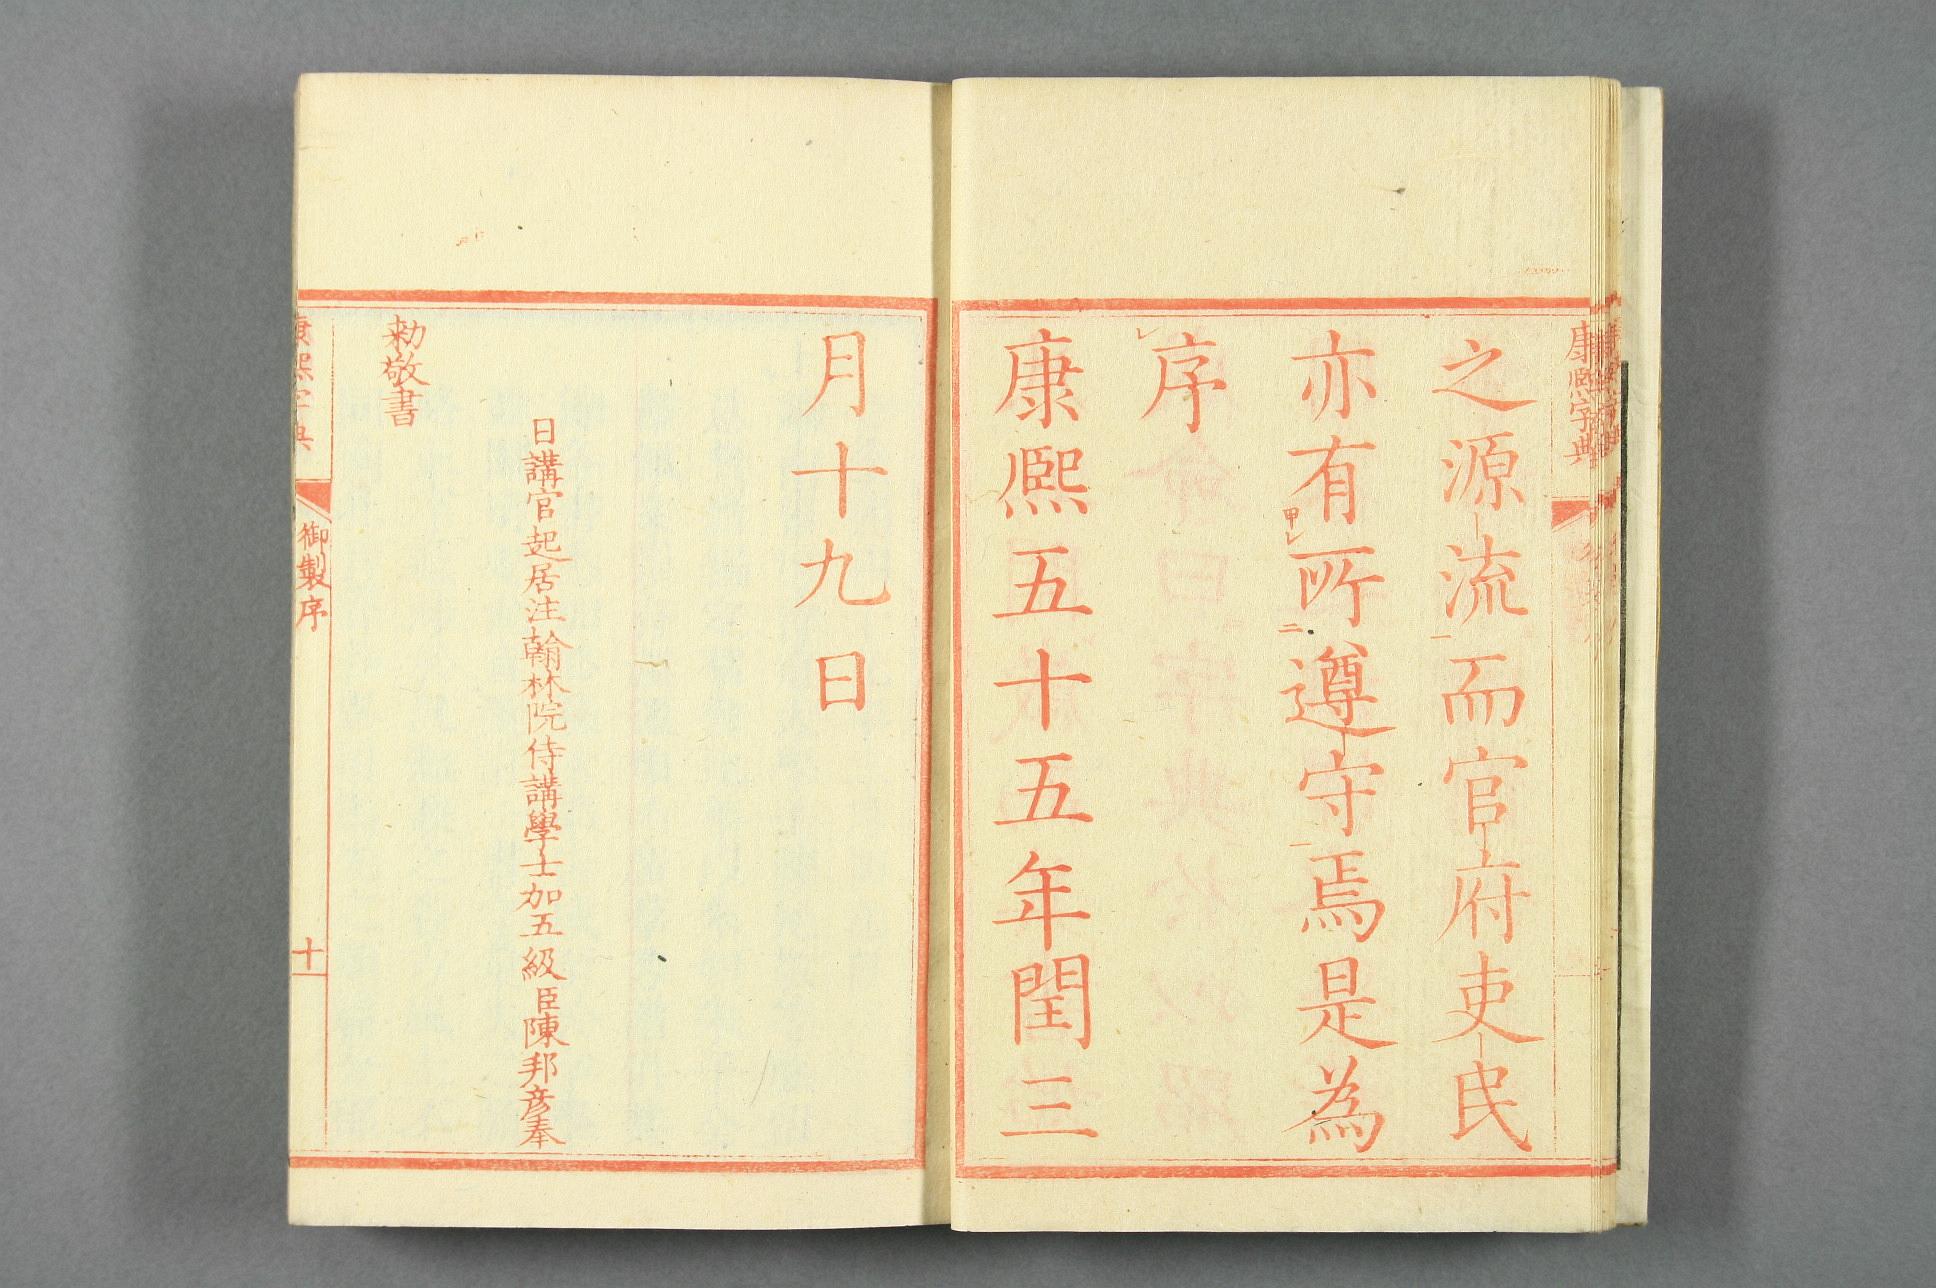 康熙字典
之源流而官府吏民
亦有所遵守焉是為
序
康熙五十五年閏三
月十九日
日講官起居注翰林院侍講學士加五級臣陳邦彦奉
勅敬書
康熙字典
御製序
十